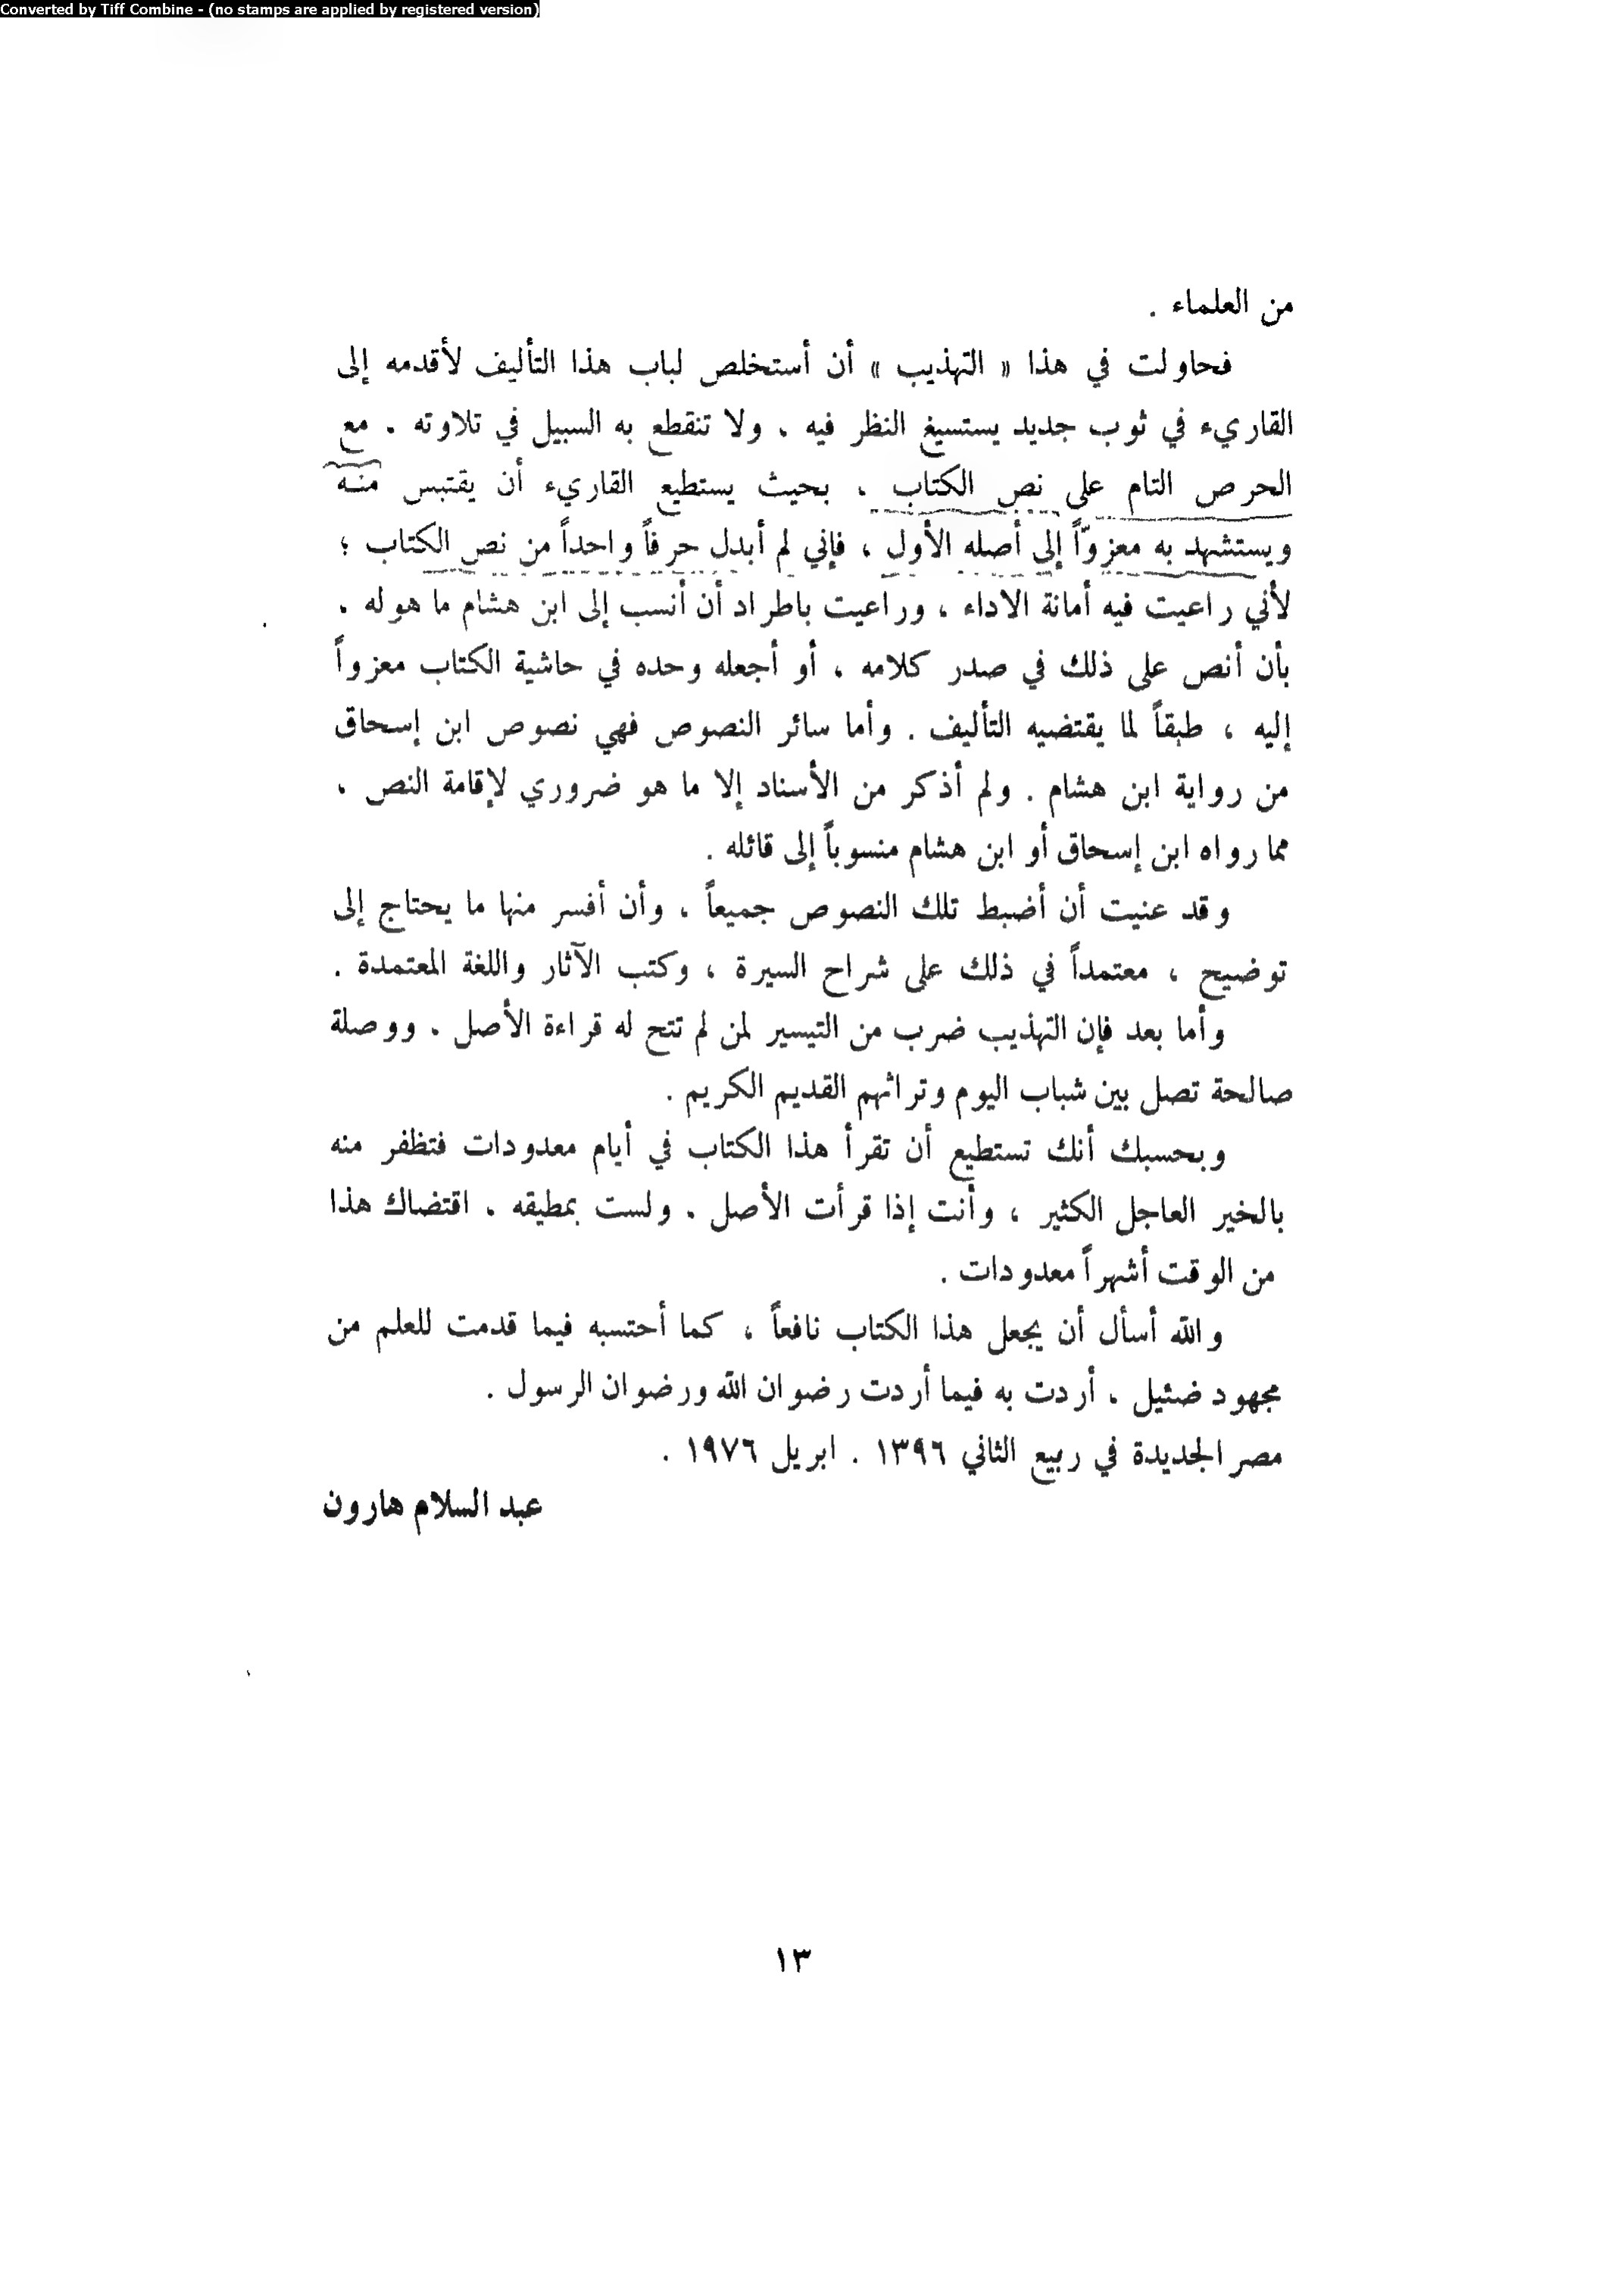 Converted by Tiff Combine - (no stamps are applied by registered version)
من العلماء .
فحاولت في هذا « التهذيب » أن أستخلص لباب هذا التأليف لأقدمه إلى
القاريء في ثوب جديد يستسيغ النظر فيه ، ولا تنقطع به السبيل في تلاوته ، مع
الحرص التام على نص الكتاب ، بحيث يستطيع القاريء أن يقتبس منه
ويستشهد به معزوّاً إلى أصله الأول ، فإني لم أبدل حرفاً واحداً من نص الكتاب ؛
لأني راعيت فيه أمانة الاداء ، وراعيت باطراد أن أنسب إلى ابن هشام ما هو له ،
بأن أنص على ذلك في صدر كلامه ، أو أجعله وحده في حاشية الكتاب معزواً
إليه ، طبقاً لما يقتضيه التأليف . وأما سائر النصوص فهي نصوص ابن إسحاق
من رواية ابن هشام . ولم أذكر من الأسناد إلا ما هو ضروري لإقامة النص ،
مما رواه ابن إسحاق أو ابن هشام منسوباً إلى قائله .
وقد عنيت أن أضبط تلك النصوص جميعاً ، وأن أفسر منها ما يحتاج إلى
توضيح ، معتمداً في ذلك على شراح السيرة ، وكتب الآثار واللغة المعتمدة .
وأما بعد فإن التهذيب ضرب من التيسير لمن لم تتح له قراءة الأصل ، ووصلة
صالحة تصل بين شباب اليوم وتراثهم القديم الكريم .
وبحسبك أنك تستطيع أن تقرأ هذا الكتاب في أيام معدودات فتظفر منه
بالخير العاجل الكثير ، وأنت إذا قرأت الأصل ، ولست بمطيقه ، اقتضاك هذا
من الوقت أشهراً معدودات .
والله أسأل أن يجعل هذا الكتاب نافعاً ، كما أحتسبه فيما قدمت للعلم من
مجهود ضئيل ، أردت به فيما أردت رضوان الله ورضوان الرسول .
مصر الجديدة في ربيع الثاني ١٣٩٦ . ابريل ١٩٧٦ .
عبد السلام هارون
١٣